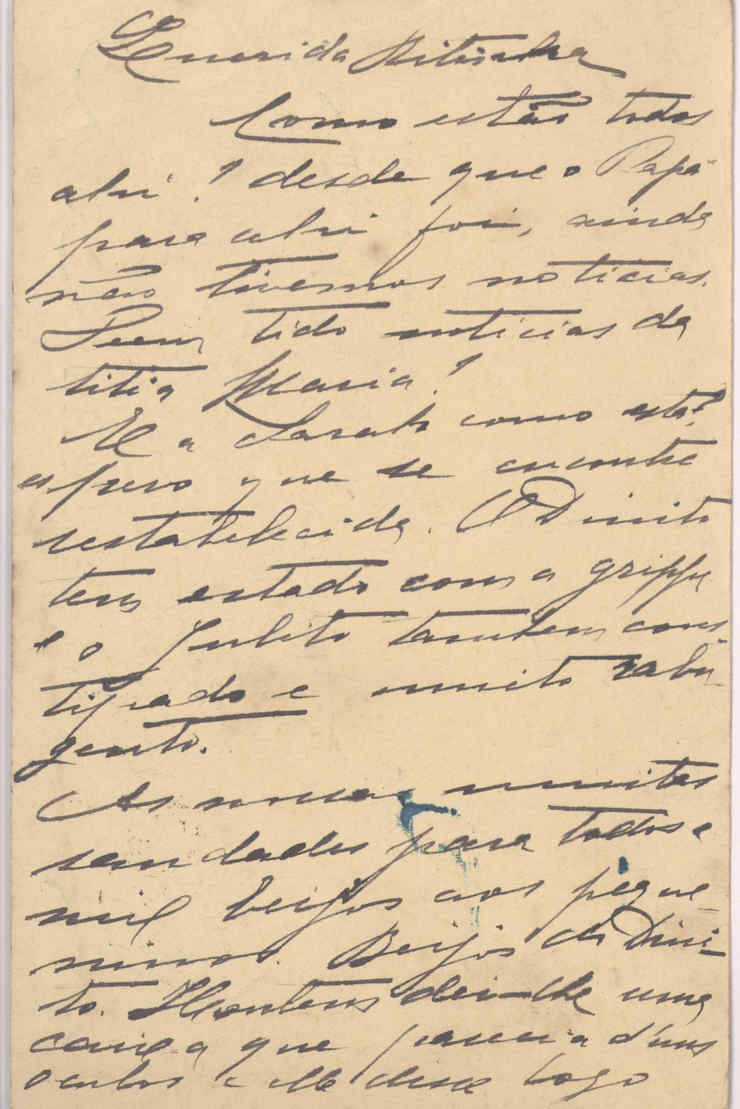 Querida
Como estão todos
ahi? desde que o Papá
para ahi foi, ainda
não tivemos noticias.
Teem tido noticias da
titia Maria?
E a Sarah como está?
espero que se encontre
restabelecida. O Dinito
tem estado com a grippe
e o Julito tambem cons-
tipado e muito rabu-
gento.
As nossas muitas
saudades para todos e
mil beijos aos peque-
ninos. Beijos do Dini-
to. Hontem dei-lhe uma
que parecia d'uns
oculos e elle disse logo